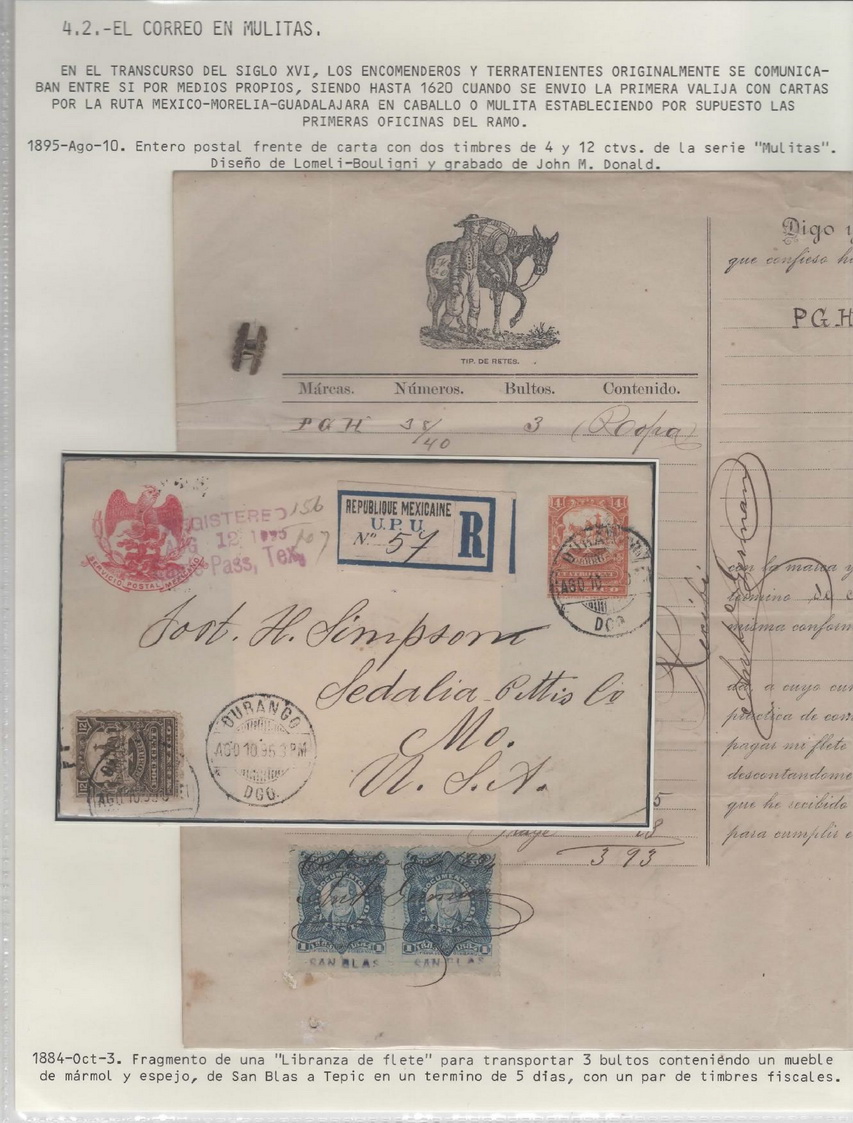 4.2.-EL CORREO EN MULITAS.
EN EL TRANSCURSO DEL SIGLO XVI, LOS ENCOMENDEROS Y TERRATENIENTES ORIGINALMENTE SE COMUNICA-
BAN ENTRE SI POR MEDIOS PROPIOS, SIENDO HASTA 1620 CUANDO SE ENVIO LA PRIMERA VALIJA CON CARTAS
POR LA RUTA MEXICO-MORELIA-GUADALAJARA EN CABALLO O MULITA ESTABLECIENDO POR SUPUESTO LAS
PRIMERAS OFICINAS DEL RAMO.
1895-Ago-10. Entero postal frente de carta con dos timbres de 4 y 12 ctvs. de la serie "Mulitas".
Diseño de Lomeli-Bouligni y grabado de John M. Donald.
TIP. DE RETES.
Márcas. Números. Bultos. Contenido.
PGH 38/40 3 (Ropa)
Digo y
que confieso h
PGH
con la marca y
término de
misma conform
da, a cuyo cum
práctica de com
pagar mi flete
descontandome
que he recibido
para cumplir
Recibí
SERVICIO POSTAL MEXICANO
GISTERED
12 1895
Pass, Tex.
156
107
REPUBLIQUE MEXICAINE
U.P.U.
Nº 57
R
4 4
AGO 10
DGO.
Post. H. Simpson
Sedalia Pettis Co
Mo.
U. S. A.
12 12
AGO 10.95 3
DURANGO
AGO 10.95 3 PM
DGO.
5
18
3 93
DOCUMENTOS DOCUMENTOS
SAN BLAS SAN BLAS
1884-Oct-3. Fragmento de una "Libranza de flete" para transportar 3 bultos conteniéndo un mueble
de mármol y espejo, de San Blas a Tepic en un termino de 5 días, con un par de timbres fiscales.